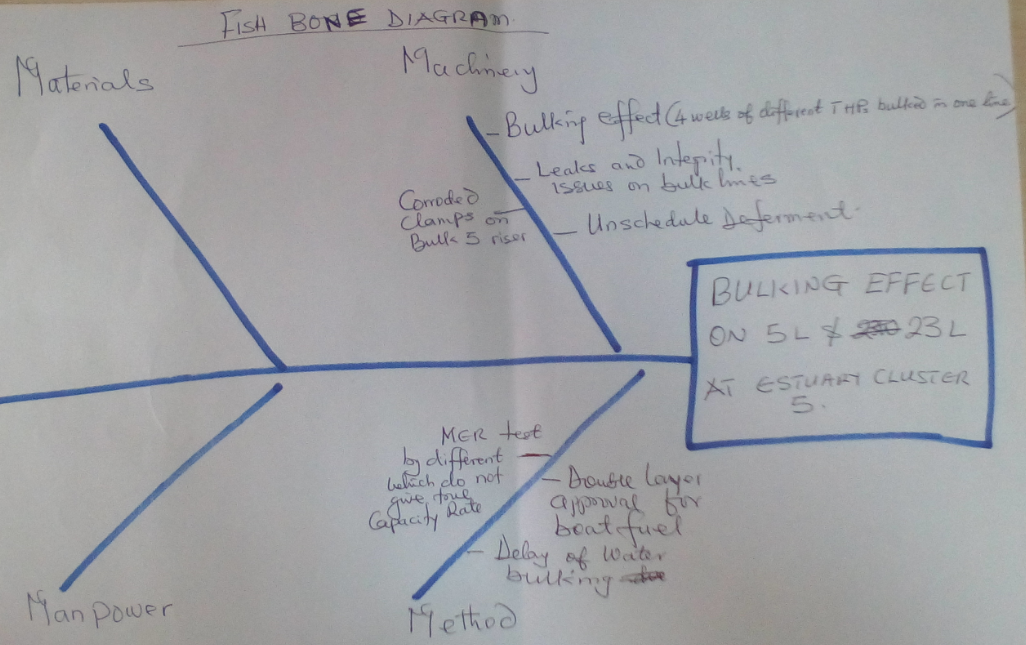 FISH BONE DIAGRAM.
Materials
Machinery
- Bulking effect (4 wells of different THPs bulked in one line)
- Leaks and Integrity
issues on bulk lines
Corroded
Clamps on
Bulk 5 riser
- Unschedule Deferment.
BULKING EFFECT
ON 5L & 23L
AT ESTUARY CLUSTER
5.
MER test
by different
which do not
give true
Capacity Rate
- Double layer
approval for
boat fuel
- Delay of Water
bulking
Manpower
Method